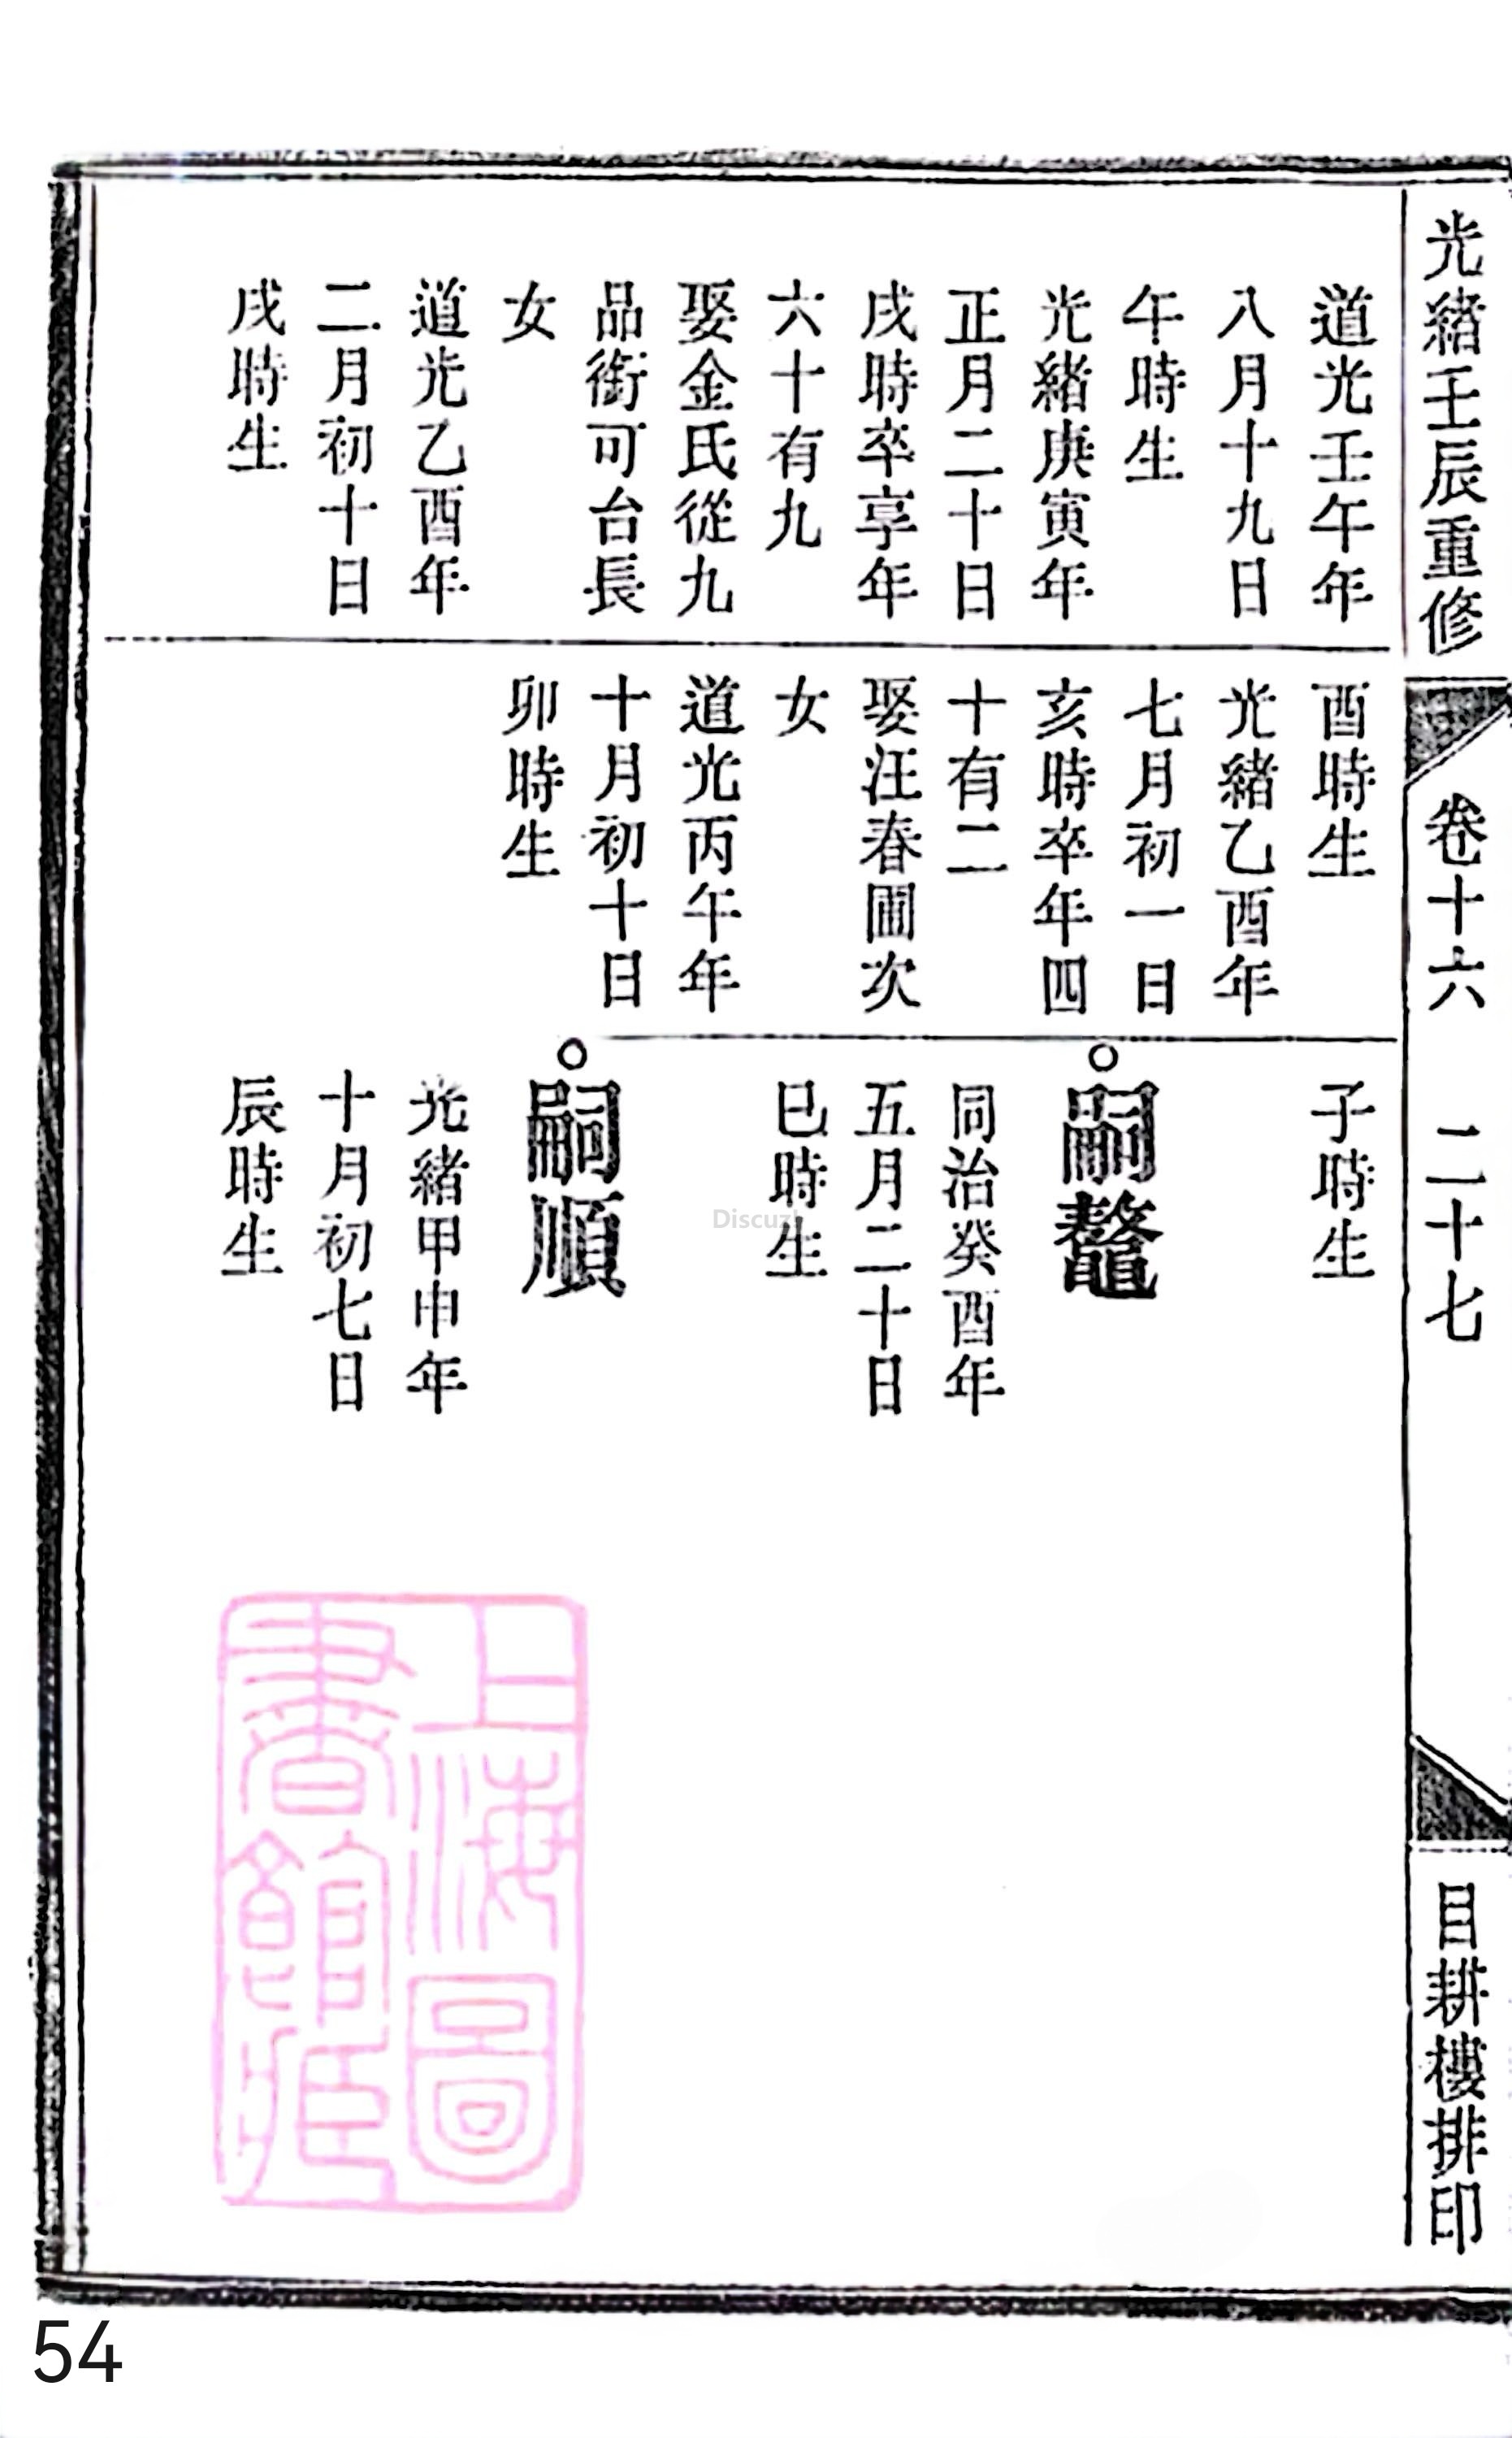 光緒壬辰重修
卷十六
二十七
目耕樓排印
道光壬午年
八月十九日
午時生
光緒庚寅年
正月二十日
戌時卒享年
六十有九
娶金氏從九
品銜可台長
女
道光乙酉年
二月初十日
戌時生
酉時生
光緒乙酉年
七月初一日
亥時卒年四
十有二
娶汪春圃次
女
道光丙午年
十月初十日
卯時生
子時生
嗣鼇
同治癸酉年
五月二十日
巳時生
嗣順
光緒甲申年
十月初七日
辰時生
上海圖
書館藏
Discuz!
54